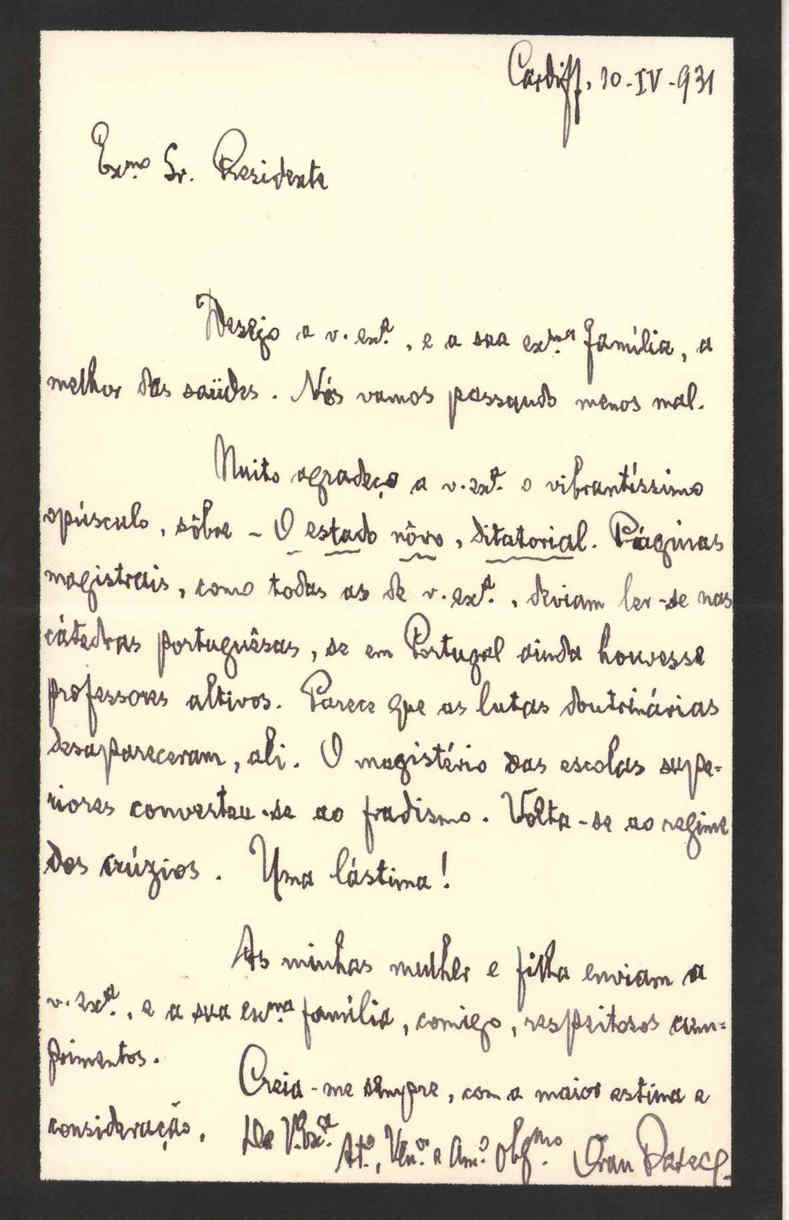 Cardiff, 10-IV-931
Ex.mo Sr. Presidente
Desejo a v. ex.ª, e a sua ex.ma família, a
melhor das saüdes. Nós vamos passando menos mal.
Muito agradeço a v. ex.ª o vibrantíssimo
opúsculo, sôbre - O estado nôvo, ditatorial. Páginas
magistrais, como todas as de v. ex.ª, deviam ler-se nas
cátedras portuguêsas, se em Portugal ainda houvesse
professores altivos. Parece que as lutas doutrinárias
desapareceram, ali. O magistério das escolas supe=
riores converteu-se ao fradismo. Volta-se ao regime
dos crúzios. Uma lástima!
As minhas mulher e filha enviam a
v. ex.ª, e a sua ex.ma família, comigo, respeitosos cum=
primentos.
Creia-me sempre, com a maior estima e
consideração,
De V. Ex.ª
At.º, Ven.or e Am.º Obg.mo